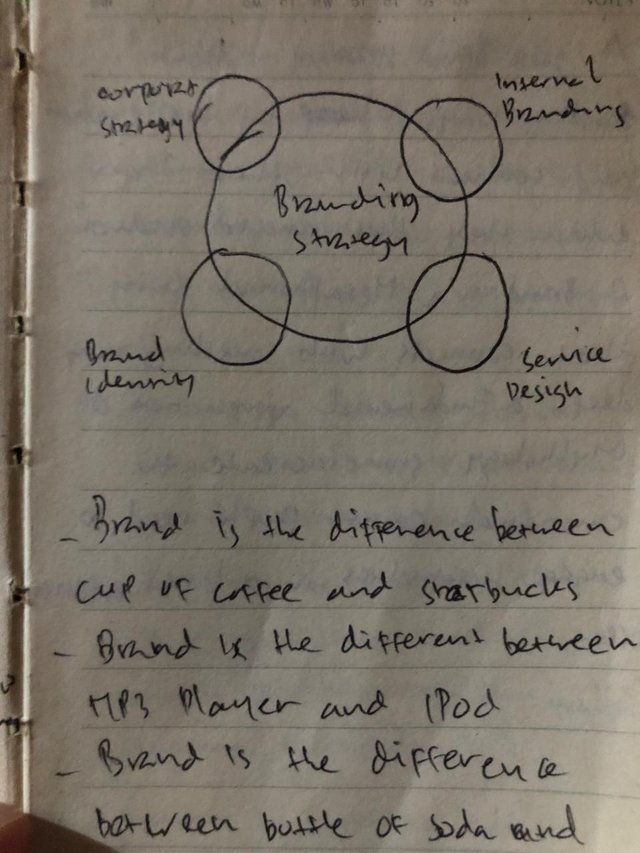 corporat
strategy
Internal
Branding
Branding
strategy
Brand
Identity
Service
Design
- Brand is the difference between
cup of coffee and starbucks
- Brand is the different between
MP3 Player and IPod
- Brand is the difference
between bottle of soda and